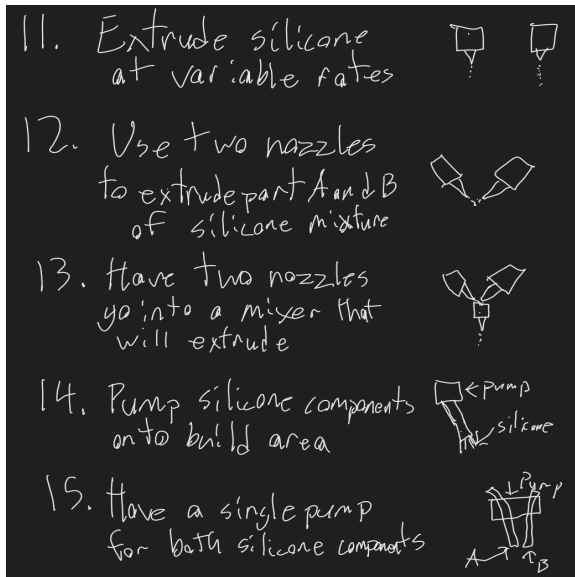 11. Extrude silicone
at variable rates
12. Use two nozzles
to extrude part A and B
of silicone mixture
13. Have two nozzles
go into a mixer that
will extrude
14. Pump silicone components
onto build area
pump
silicone
15. Have a single pump
for both silicone components
Pump
A
B